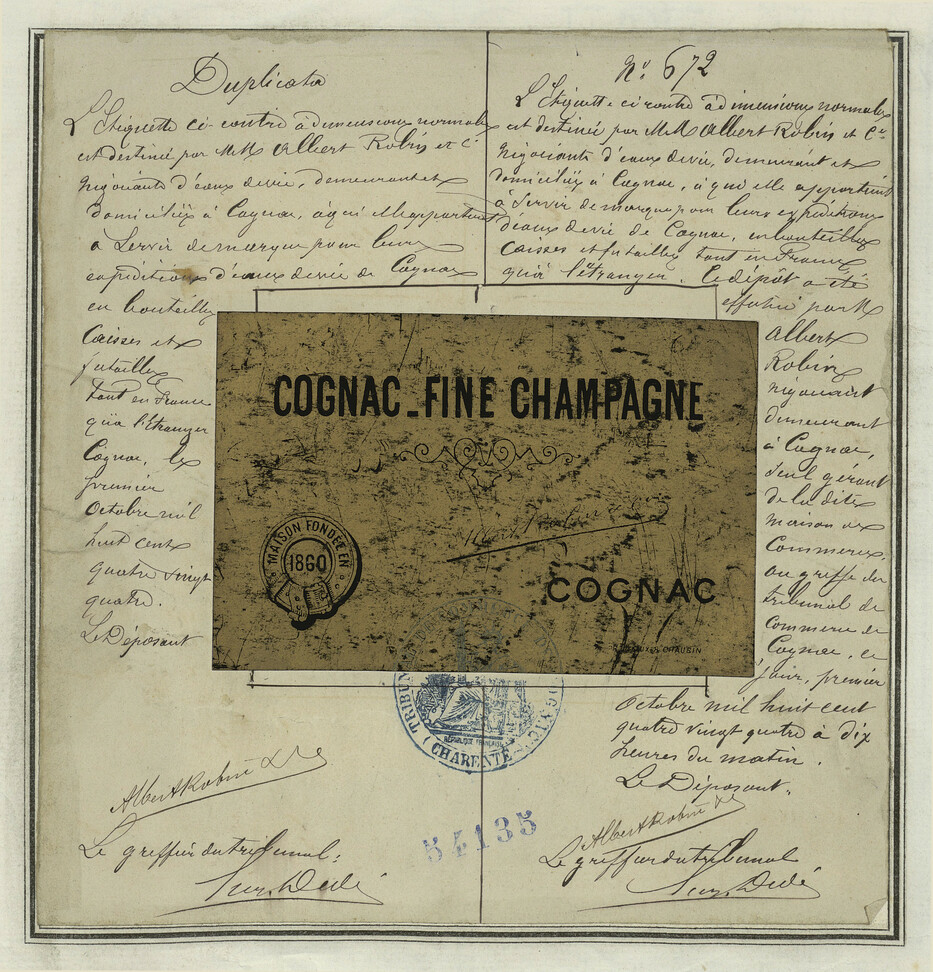 Duplicata
L'Etiquette ci-contre à dimensions normales
est destinée par MM Albert Robin et Cie
Négociants d'eaux de vie, demeurant et
domiciliés à Cognac, à qui elle appartient
à servir de marque pour leurs
expéditions d'eaux de vie de Cognac
en bouteilles
Caisses et
futailles
tout en France
qu'à l'Etranger
Cognac, le
premier
Octobre mil
huit cent
quatre vingt
quatre.
Le Déposant
Albert Robin & Cie
Le greffier du tribunal:
No 672
L'Etiquette ci contre à dimensions normales
est destinée par MM Albert Robin et Cie
Négociants d'eaux de vie, demeurant et
domiciliés à Cognac, à qui elle appartient
à servir de marque pour leurs expéditions
d'eaux de vie de Cognac, en bouteilles
Caisses et futailles tant en France
qu'à l'étranger. Ce dépôt a été
effectué par M
Albert
Robin
négociant
demeurant
à Cognac,
seul gérant
de la dite
maison de
Commerce,
au greffe du
tribunal de
Commerce de
Cognac, ce
jour, premier
Octobre mil huit cent
quatre vingt quatre à dix
heures du matin.
Le Déposant.
Albert Robin & Cie
Le greffier du tribunal
COGNAC_FINE CHAMPAGNE
Albert Robin & Cie
MAISON FONDÉE EN
1860
COGNAC
TRIBUNAL
COGNAC
RÉPUBLIQUE FRANÇAISE
(CHARENTE)
54135